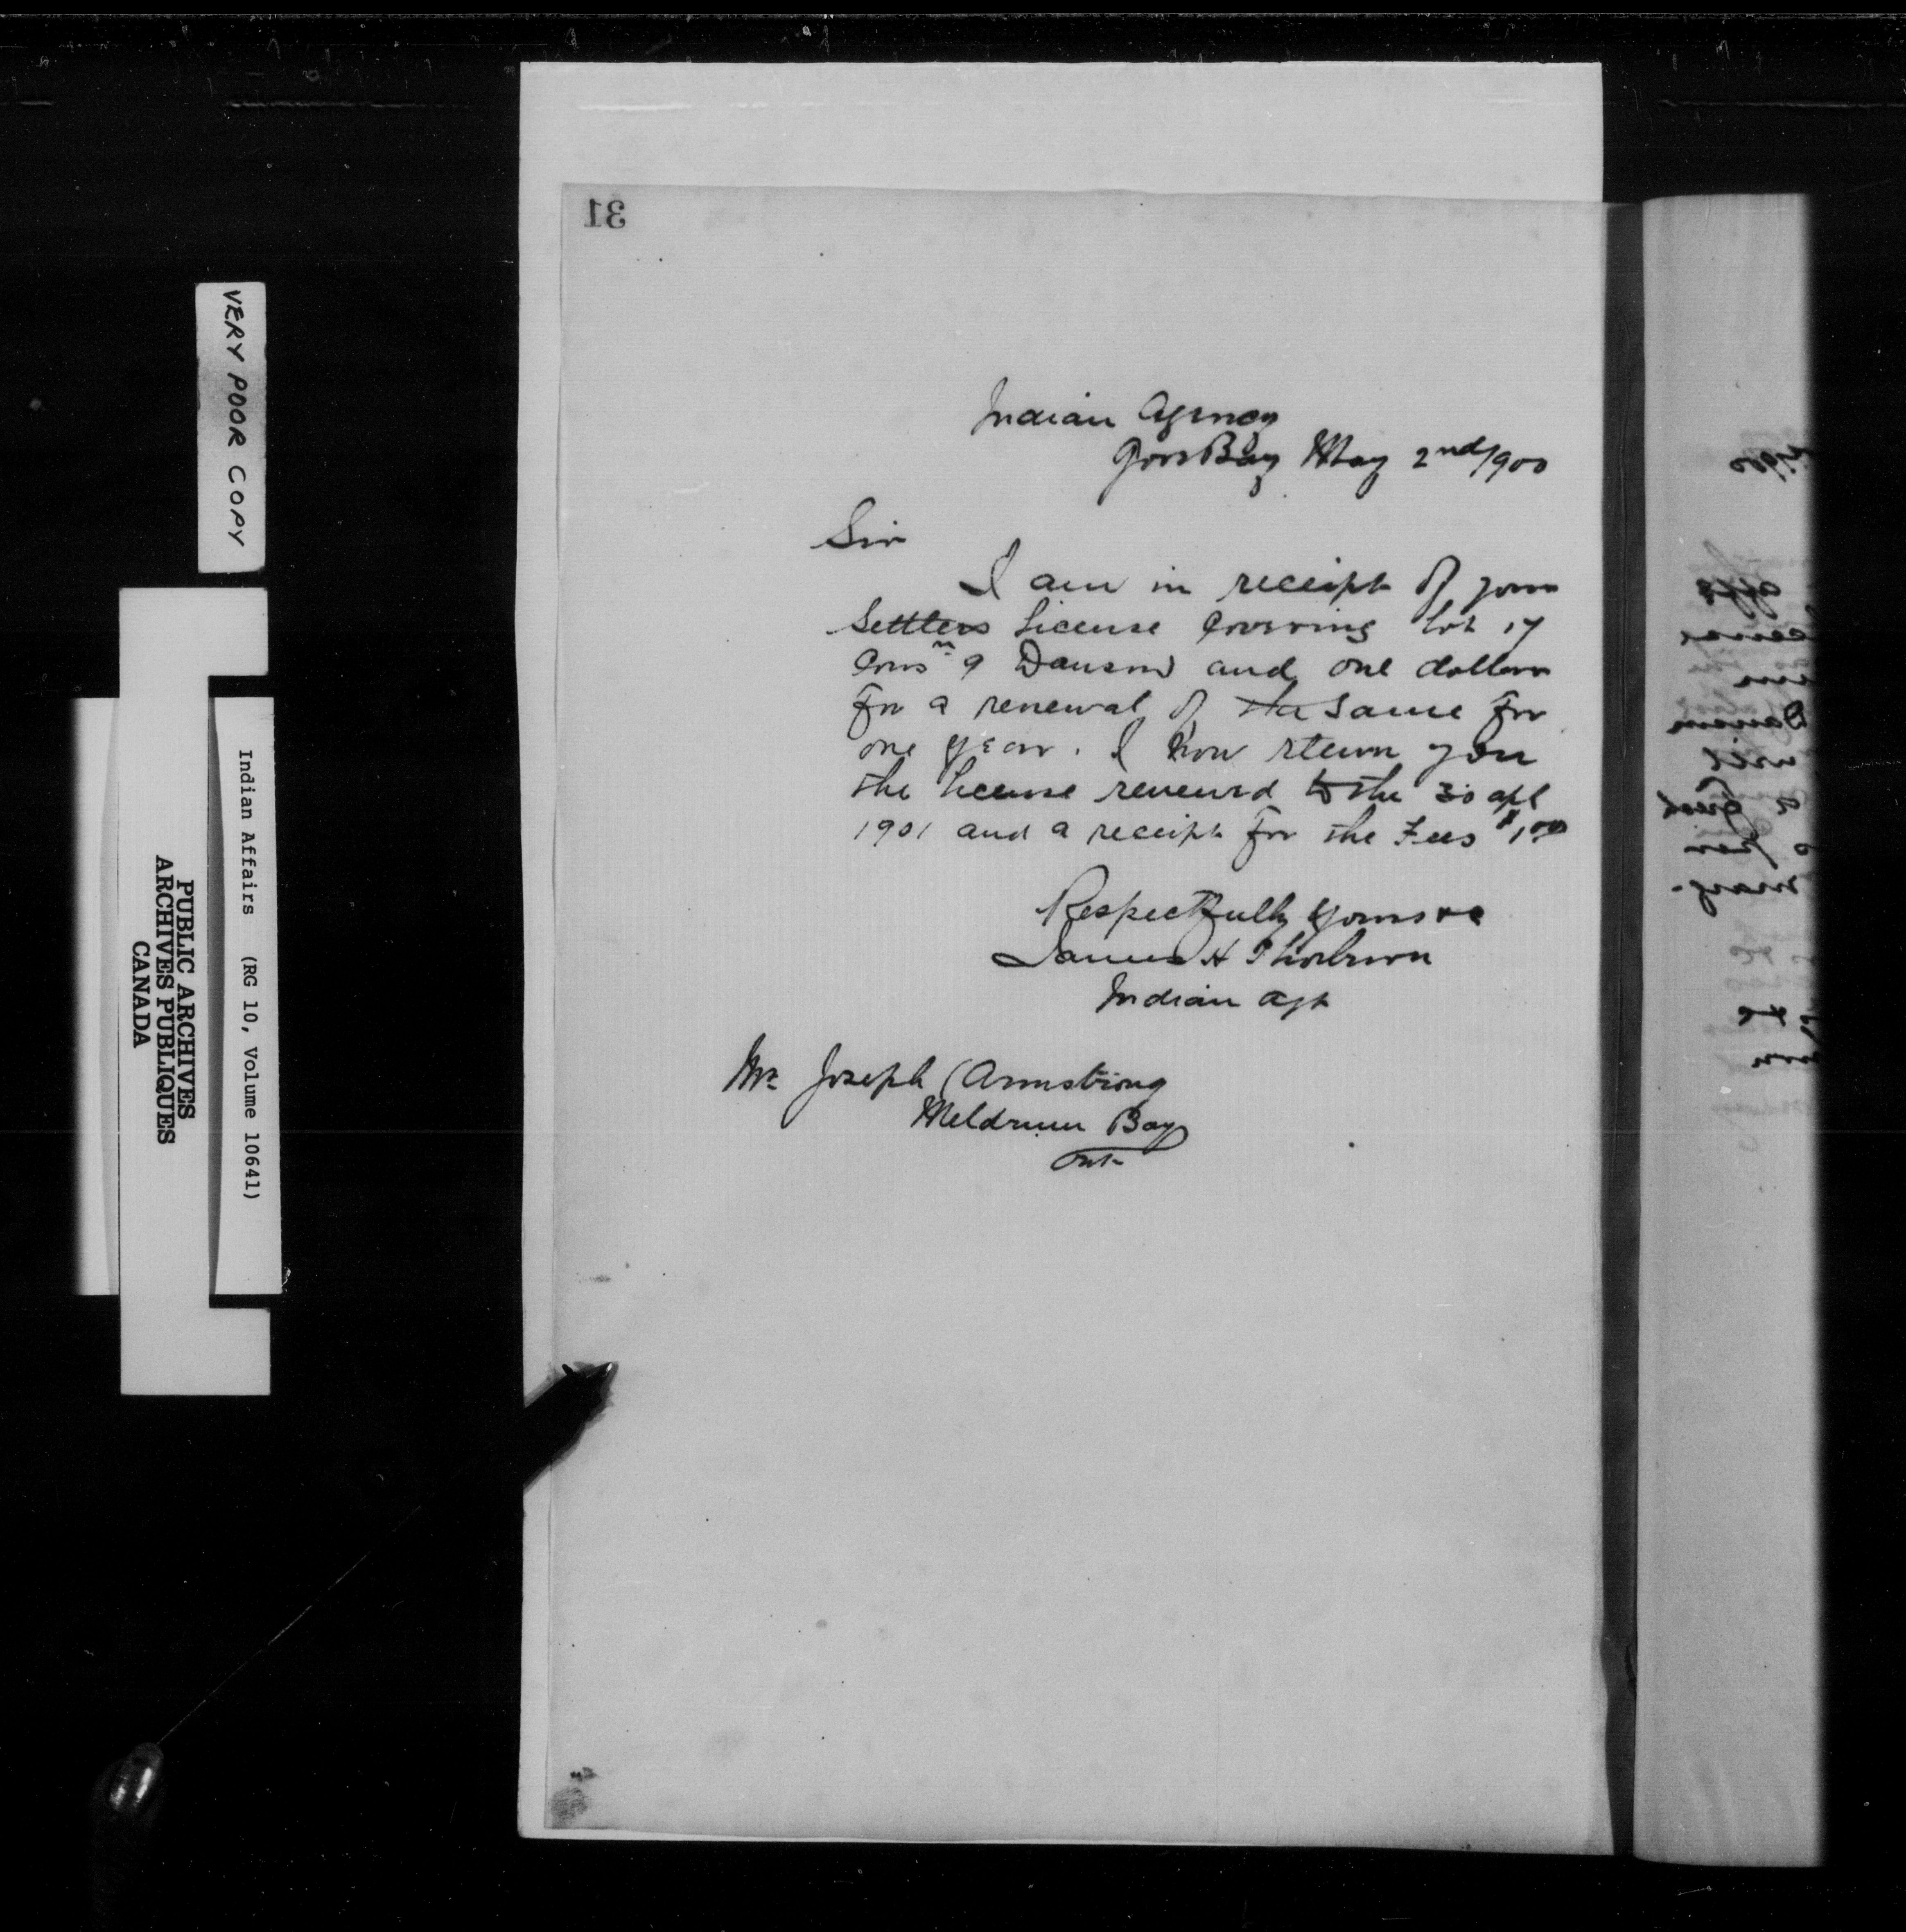 31
Indian Agency
Gore Bay May 2nd/900
Sir
I am in receipt of your
Settlers License Covering Lot 17
Conn 9 Dawson and one dollar
for a renewal of the same for
one year. I now return you
the license renewed to the 30 apl
1901 and a receipt for the Fees $1.00
Respectfully Yours &c
James H Thorburn
Indian Agt
Mr Joseph Armstrong
Meldrum Bay
Ont
VERY POOR COPY
Indian Affairs (RG 10, Volume 10641)
PUBLIC ARCHIVES
ARCHIVES PUBLIQUES
CANADA